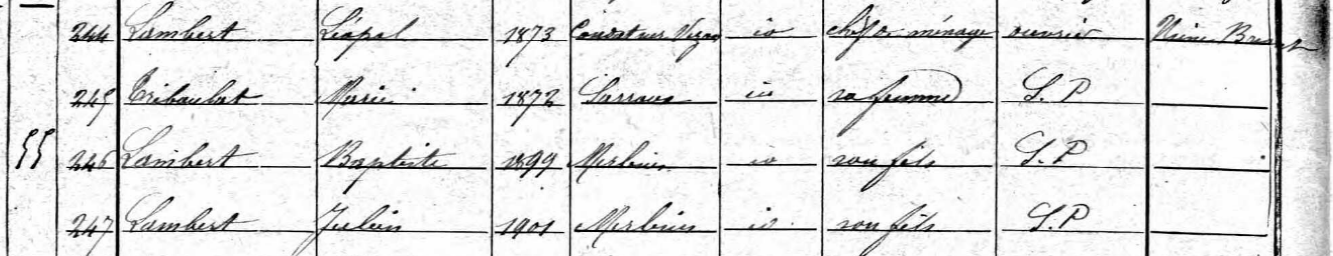 244 Lambert Léopol 1873 id chef de ménage ouvrier
245 Tribaulat Marie 1872 id sa femme S.P
55 246 Lambert Baptiste 1899 Merlines id son fils S.P
247 Lambert Julien 1901 Merlines id son fils S.P